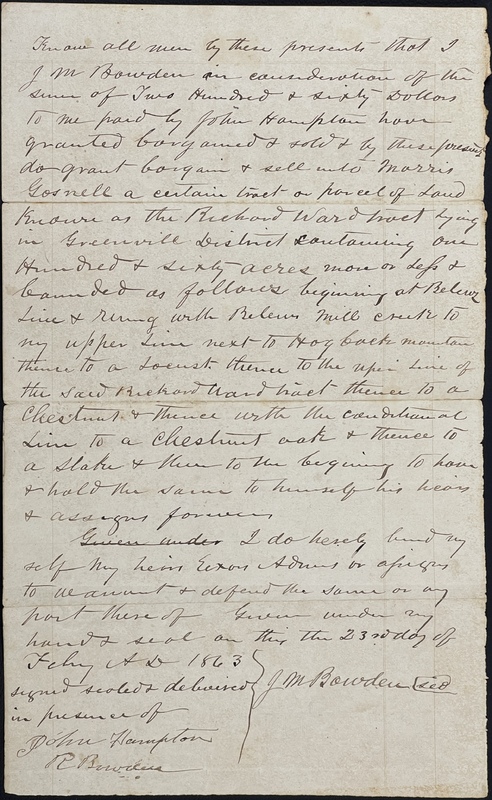 Know all men by these presents that I
J M Bowden in consideration of the
sum of Two Hundred & sixty Dollars
to me paid by John Hampton have
granted bargained & sold & by these presents
do grant bargain & sell unto Morris
Gosnell a certain tract or parcel of Land
Known as the Richard Ward tract lying
in Greenville District containing one
Hundred & sixty acres more or less &
bounded as follows begining at Belews
Line & runing with Belews Mill creek to
my upper Line next to Hog back mountain
thence to a Locust thence to the uper line of
the said Richard Ward tract thence to a
Chestnut & thence with the conditional
Line to a chestnut oake & thence to
a stake & then to the begining to have
& hold the same to himself his heirs
& assigns forever
Given under I do hereby bind my
self my heirs Exors Admrs or assigns
to warrant & defend the same or any
part there of Given under my
hand & seal on this the 23rd day of
Feby A D 1863
signed sealed & delivered J M Bowden seal
in presence of
John Hampton
R Bowden